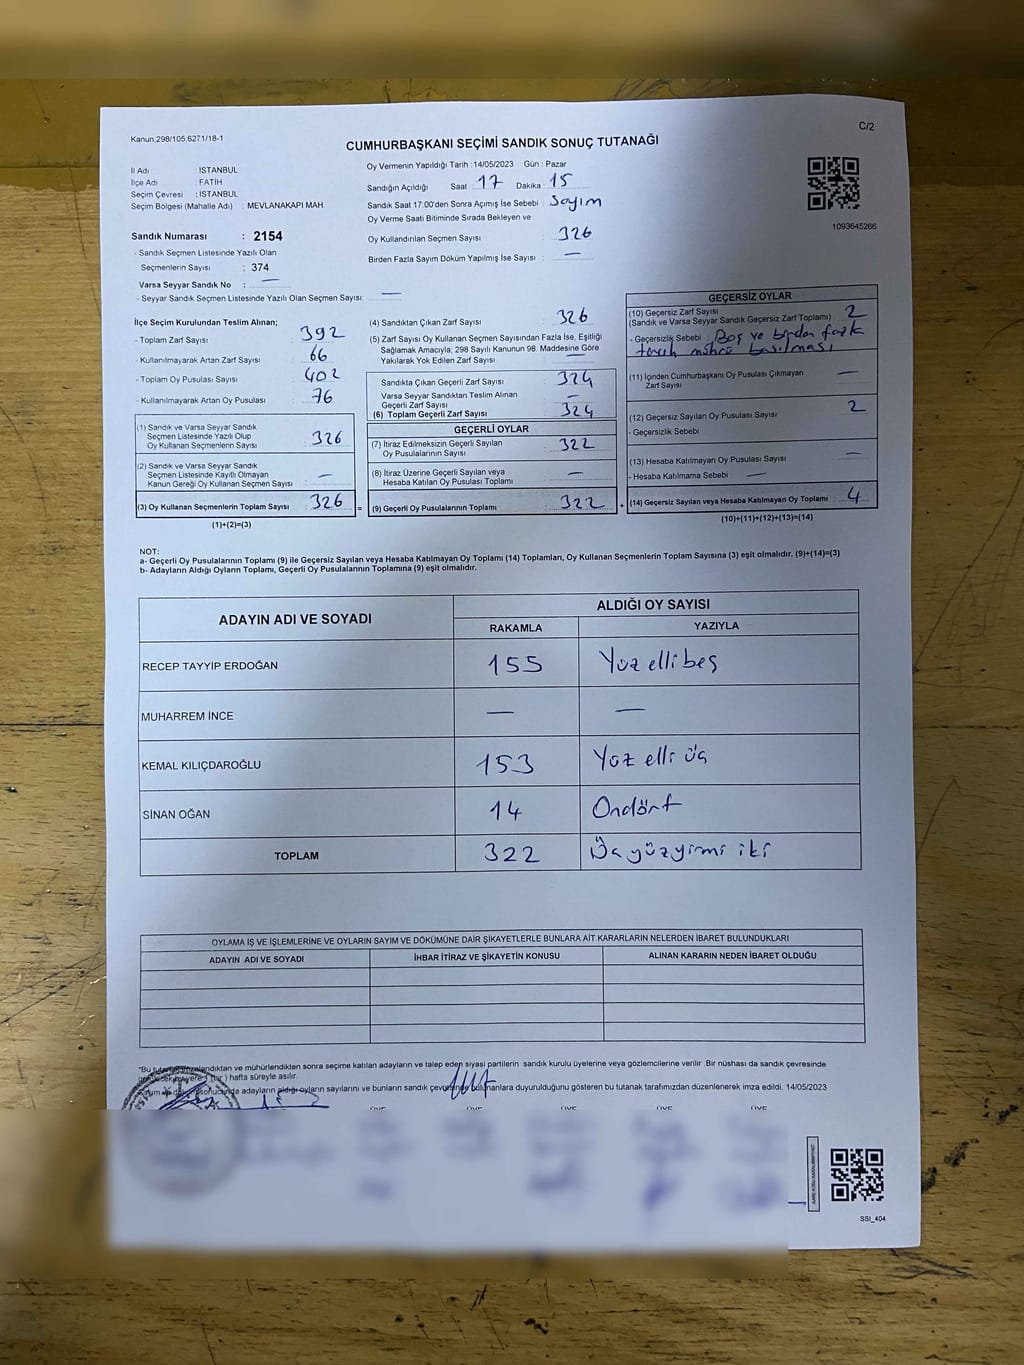 Kanun.298/105.6271/18-1
C/2
CUMHURBAŞKANI SEÇİMİ SANDIK SONUÇ TUTANAĞI
İl Adı : İSTANBUL
İlçe Adı : FATİH
Seçim Çevresi : İSTANBUL
Seçim Bölgesi (Mahalle Adı) : MEVLANAKAPI MAH.
Oy Vermenin Yapıldığı Tarih : 14/05/2023 Gün : Pazar
Sandığın Açıldığı Saat : 17 Dakika : 15
Sandık Saat 17.00'den Sonra Açımış İse Sebebi : Sayım
Oy Verme Saati Bitiminde Sırada Bekleyen ve
Oy Kullandırılan Seçmen Sayısı : 326
Birden Fazla Sayım Döküm Yapılmış İse Sayısı : —
1093645266
Sandık Numarası : 2154
- Sandık Seçmen Listesinde Yazılı Olan
Seçmenlerin Sayısı : 374
Varsa Seyyar Sandık No : —
- Seyyar Sandık Seçmen Listesinde Yazılı Olan Seçmen Sayısı: —
İlçe Seçim Kurulundan Teslim Alınan;
- Toplam Zarf Sayısı : 392
- Kullanılmayarak Artan Zarf Sayısı : 66
- Toplam Oy Pusulası Sayısı : 402
- Kullanılmayarak Artan Oy Pusulası : 76
(1) Sandık ve Varsa Seyyar Sandık
Seçmen Listesinde Yazılı Olup
Oy Kullanan Seçmenlerin Sayısı : 326
(2) Sandık ve Varsa Seyyar Sandık
Seçmen Listesinde Kayıtlı Olmayan
Kanun Gereği Oy Kullanan Seçmen Sayısı : —
(3) Oy Kullanan Seçmenlerin Toplam Sayısı : 326
(1)+(2)=(3)
(4) Sandıktan Çıkan Zarf Sayısı : 326
(5) Zarf Sayısı Oy Kullanan Seçmen Sayısından Fazla İse, Eşitliği
Sağlamak Amacıyla; 298 Sayılı Kanunun 98. Maddesine Göre
Yakılarak Yok Edilen Zarf Sayısı : —
Sandıkta Çıkan Geçerli Zarf Sayısı : 324
Varsa Seyyar Sandıktan Teslim Alınan
Geçerli Zarf Sayısı : —
(6) Toplam Geçerli Zarf Sayısı : 324
GEÇERLİ OYLAR
(7) İtiraz Edilmeksizin Geçerli Sayılan
Oy Pusulalarının Sayısı : 322
(8) İtiraz Üzerine Geçerli Sayılan veya
Hesaba Katılan Oy Pusulası Toplamı : —
(9) Geçerli Oy Pusulalarının Toplamı : 322
GEÇERSİZ OYLAR
(10) Geçersiz Zarf Sayısı
(Sandık ve Varsa Seyyar Sandık Geçersiz Zarf Toplamı) : 2
- Geçersizlik Sebebi : Boş ve birden fazla
tercih mührü basılması
(11) İçinden Cumhurbaşkanı Oy Pusulası Çıkmayan
Zarf Sayısı : —
(12) Geçersiz Sayılan Oy Pusulası Sayısı : 2
- Geçersizlik Sebebi :
(13) Hesaba Katılmayan Oy Pusulası Sayısı : —
- Hesaba Katılmama Sebebi : —
(14) Geçersiz Sayılan veya Hesaba Katılmayan Oy Toplamı : 4
(10)+(11)+(12)+(13)=(14)
NOT:
a- Geçerli Oy Pusulalarının Toplamı (9) ile Geçersiz Sayılan veya Hesaba Katılmayan Oy Toplamı (14) Toplamları, Oy Kullanan Seçmenlerin Toplam Sayısına (3) eşit olmalıdır. (9)+(14)=(3)
b- Adayların Aldığı Oyların Toplamı, Geçerli Oy Pusulalarının Toplamına (9) eşit olmalıdır.
ADAYIN ADI VE SOYADI ALDIĞI OY SAYISI
RAKAMLA YAZIYLA
RECEP TAYYİP ERDOĞAN 155 Yüz elli beş
MUHARREM İNCE — —
KEMAL KILIÇDAROĞLU 153 Yüz elli üç
SİNAN OĞAN 14 Ondört
TOPLAM 322 Üçyüzyirmi iki
OYLAMA İŞ VE İŞLEMLERİNE VE OYLARIN SAYIM VE DÖKÜMÜNE DAİR ŞİKAYETLERLE BUNLARA AİT KARARLARIN NELERDEN İBARET BULUNDUKLARI
ADAYIN ADI VE SOYADI İHBAR İTİRAZ VE ŞİKAYETİN KONUSU ALINAN KARARIN NEDEN İBARET OLDUĞU
"Bu ve mühürlendikten sonra seçime katılan adayların ve talep eden siyasi partilerin sandık kurulu üyelerine veya gözlemcilerine verilir. Bir nüshası da sandık çevresinde
hafta süreyle asılır.
adayların aldığı oyların sayılarını ve bunların sandık duyurulduğunu gösteren bu tutanak tarafımızdan düzenlenerek imza edildi. 14/05/2023
ÜYE ÜYE ÜYE ÜYE ÜYE
SSI_404